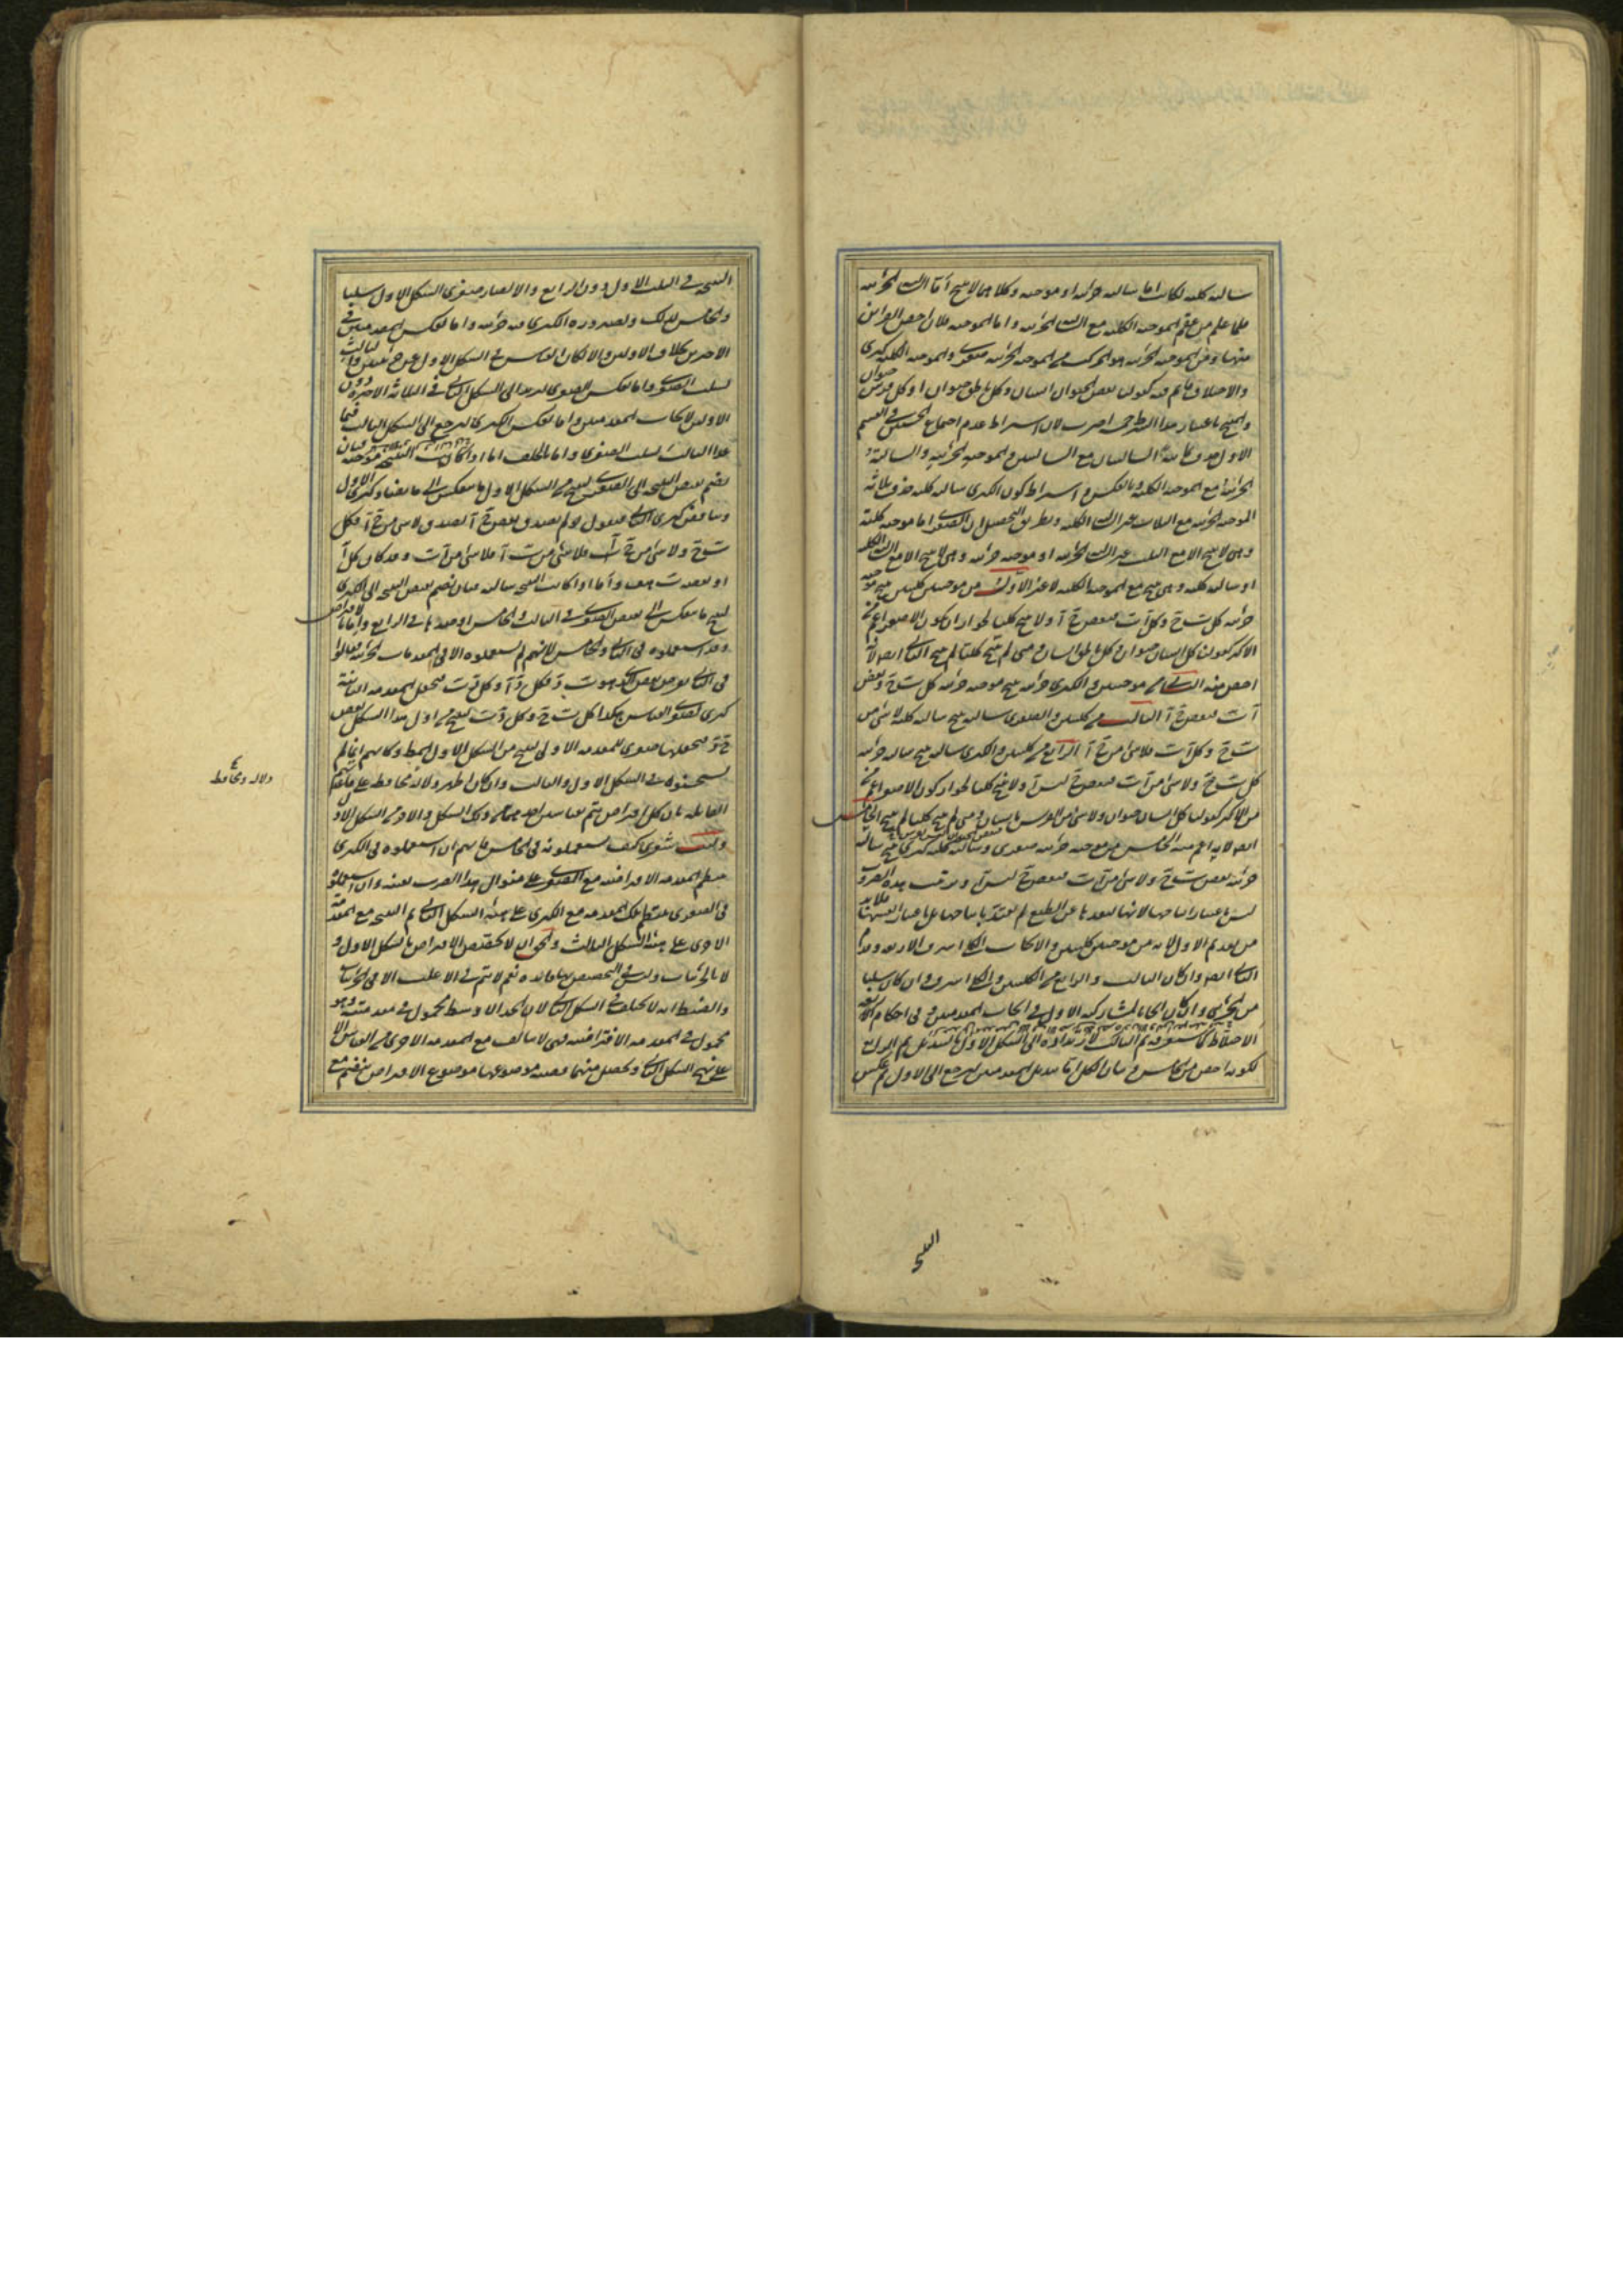 سالبة كلية لكانت اما سالبة جزئية او موجبة وكلاهما لا ينتج أما السالبة الجزئية
فلما علم من عقم الموجبة الكلية مع السالبة الجزئية واما الموجبة فلان اخص القرائن
منها ومن الموجبة الجزئية هو المركب من الموجبة الجزئية صغرى والموجبة الكلية كبرى
والاختلاف قائم فيه كقولنا بعض الحيوان انسان وكل ناطق حيوان او كل فرس حيوان
والمنتج باعتبار هذا الشرط خمسة اضرب لان اشتراط عدم اجتماع الخستين في القسم
الاول حذف ثمانية السالبتان مع السالبتين والموجبة الجزئية والسالبة
الجزئية مع الموجبة الكلية وبالعكس و اشتراط كون الكبرى سالبة كلية حذف ثلاثة
الموجبة الجزئية مع الثلاث غير السالبة الكلية وبطريق التحصيل ان الصغرى اما موجبة كلية
وهي لا ينتج الا مع الثلث غير السالبة الجزئية او موجبة جزئية وهي لا ينتج الا مع السالبة الكلية
او سالبة كلية وهي ينتج مع الموجبة الكلية لا غير الاول من موجبتين كليتين ينتج موجبة
جزئية كل ب ج وكل آ ب فبعض ج آ ولا ينتج كليا لجواز ان يكون الاصغر اعم من
الاكبر كقولنا كل انسان حيوان وكل ناطق انسان ومتى لم ينتج كليا لم ينتج الثاني ايضا لانه
اخص منه الثاني من موجبتين والكبرى جزئية ينتج موجبة جزئية كل ب ج وبعض
آ ب فبعض ج آ الثالث من كليتين والصغرى سالبة ينتج سالبة كلية لا شئ من
ب ج وكل آ ب فلا شئ من ج آ الرابع من كليتين والكبرى سالبة ينتج سالبة جزئية
كل ب ج ولا شئ من آ ب فبعض ج ليس آ ولا ينتج كليا لجواز كون الاصغر اعم
من الاكبر كقولنا كل انسان حيوان ولا شئ من الفرس بانسان ومتى لم ينتج كليا لم ينتج الخامس
ايضا لانه اعم منه الخامس من موجبة جزئية صغرى وسالبة كلية كبرى ينتج سالبة
جزئية بعض ب ج ولا شئ من آ ب فبعض ج ليس آ وترتيب هذه الضروب
ليس باعتبار انتاجها لانها لبعدها عن الطبع لم يعتد بانتاجها بل باعتبار انفسها فلابد
من تقديم الاول لانه من موجبتين كليتين والايجاب الكلي اشرف الاربع وقدم
الثاني ايضا وان كان الثالث والرابع من الكليتين والكلي اشرف وان كان سلبا
من الجزئي وان كان ايجابا لمشاركته الاول في ايجاب المقدمتين و في احكام
الاختلاط كما ستعرفه ثم الثالث لارتداده الى الشكل الاول بالتبديل ثم الرابع
لكونه اخص من الخامس وبيان الكل اما بتبديل المقدمتين ليرجع الى الاول ثم عكس
النتيجة
النتيجة في الثلث الاول دون الرابع والا لصار صغرى الشكل الاول سلبا
والخامس لذلك ولصيرورة الكبرى فيه جزئية واما بعكس المقدمتين في
الاخيرين بخلاف الاولين والا لكان القياس في الشكل الاول عن جزئيتين والثالث
لسلب الصغرى واما بعكس الصغرى ليرتد الى الشكل الثاني في الثلاثة الاخيرة دون
الاولين لايجاب المقدمتين واما بعكس الكبرى ليرجع الى الشكل الثالث فيما
عدا الثالث لسلب الصغرى واما بالخلف اما اذا كانت النتيجة موجبة فبان
يضم نقيض النتيجة الى الصغرى لينتج من الشكل الاول ما ينعكس الى ما يضاد كبرى الاول
ويناقض كبرى الثاني فنقول لو لم يصدق بعض ج آ لصدق لا شئ من ج آ فكل
ب ج ولا شئ من ج آ فلا شئ من ب آ فلا شئ من آ ب وقد كان كل آ
او بعضه ب هف وأما اذا كانت النتيجة سالبة فبان يضم نقيض النتيجة الى الكبرى
لينتج ما ينعكس الى نقيض الصغرى في الثالث والخامس او ضدها في الرابع واما بالافتراض
وقد استعملوه في الثاني والخامس لانهم لم يستعملوه الا في المقدمات الجزئية فقالوا
في الثاني نفرض بعض الذي هو ب د فكل د آ وكل د ب فنجعل المقدمة الثانية
كبرى لصغرى القياس هكذا كل ب ج وكل د ب لينتج من اول هذا الشكل بعض
ج د فنجعلها صغرى للمقدمة الاولى لينتج من الشكل الاول المط وكأنهم انما لم
يستحسنوه في الشكل الاول والثالث وان كان اظهر دلالة محافظة على قاعدتهم
القائلة بان كل افتراض يتم بقياسين احدهما من ذلك الشكل والاخر من الشكل الاول
وليت شعري كيف يستعملونه في الخامس فانهم ان استعملوه في الكبرى
ينتظم المقدمة الافتراضية مع الصغرى على منوال هذا الضرب بعينه وان استعملوه
في الصغرى ينتظم تلك المقدمة مع الكبرى على هيئة الشكل الثاني ثم النتيجة مع المقدمة
الاخرى على هيئة الشكل الثالث والحق ان لا يختص الافتراض بالشكل الاول و
لا بالجزئيات وليس في التخصيص بها فائدة نعم لا يتم في الاغلب الا في الجزئيات
والضبط انه لا يختلف في الشكل الثاني لان الحد الاوسط محمول في مقدمتيه وهو
محمول في المقدمة الافتراضية فهي لا يتألف مع المقدمة الاخرى من القياس الا
على نهج الشكل الثاني ويحصل منهما قضية موضوعها موضوع الافتراض فينضم مع
دلالة ومحافظة